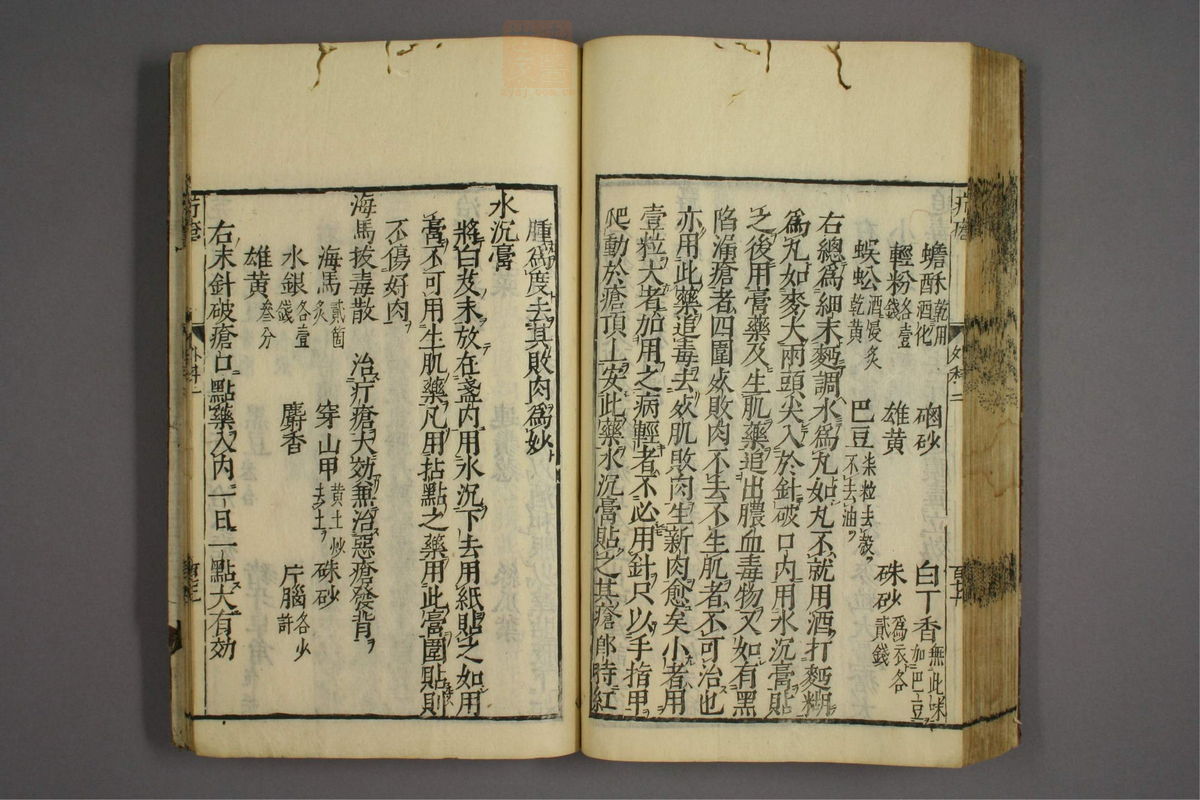 蟾酥乾用酒化 硇砂 白丁香無此味加巴豆
輕粉各壹錢 雄黄 硃砂爲衣各貳錢
蜈蚣酒浸炙乾黄 巴豆柒粒去殼不去油
右總爲細末麪調水爲丸如丸不就用酒打麪糊
爲丸如麥大兩頭尖入於針破口内用水沉膏貼
之後用膏藥及生肌藥追出膿血毒物又如有黑
陷漏瘡者四圍死敗肉不去不生肌者不可治也
亦用此藥追毒去死肌敗肉生新肉愈矣小者用
壹粒大者加用之病輕者不必用針只以手指甲
爬動於瘡頂上安此藥水沉膏貼之其瘡郎時紅
腫爲度去其敗肉爲妙
水沉膏
將白芨末放在盞内用水沉下去用紙貼之如用
膏不可用生肌藥凡用拈點之藥用此膏圍貼則
不傷好肉
海馬拔毒散 治疔瘡大効無治惡瘡發背
海馬貳箇炙 穿山甲黄土炒去土 硃砂
水銀各壹錢 麝香 片腦各少許
雄黄叁分
右末針破瘡口點藥入内一日一點大有効